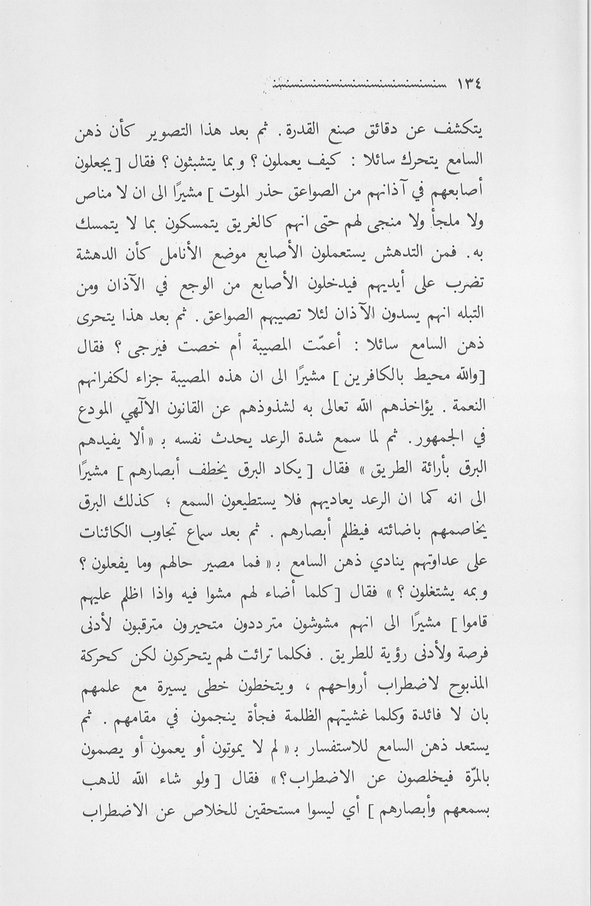 ١٣٤
يتكشف عن دقائق صنع القدرة. ثم بعد هذا التصوير كأن ذهن
السامع يتحرك سائلا : كيف يعملون ؟ وبما يتشبثون ؟ فقال [يجعلون
أصابعهم في آذانهم من الصواعق حذر الموت ] مشيرًا الى ان لا مناص
ولا ملجأ ولا منجى لهم حتى انهم كالغريق يتمسكون بما لا يتمسك
به. فمن التدهش يستعملون الأصابع موضع الأنامل كأن الدهشة
تضرب على أيديهم فيدخلون الأصابع من الوجع في الآذان ومن
التبله انهم يسدون الآذان لئلا تصيبهم الصواعق. ثم بعد هذا يتحرى
ذهن السامع سائلا : أعمّت المصيبة أم خصت فيرجى ؟ فقال
[والله محيط بالكافرين ] مشيرًا الى ان هذه المصيبة جزاء لكفرانهم
النعمة . يؤاخذهم الله تعالى به لشذوذهم عن القانون الآلهي المودع
في الجمهور. ثم لما سمع شدة الرعد يحدث نفسه بـ «ألا يفيدهم
البرق بأرائة الطريق » فقال [ يكاد البرق يخطف أبصارهم ] مشيرًا
الى انه كما ان الرعد يعاديهم فلا يستطيعون السمع ؛ كذلك البرق
يخاصمهم باضائته فيظلم أبصارهم . ثم بعد سماع تجاوب الكائنات
على عداوتهم ينادي ذهن السامع بـ «فما مصير حالهم وما يفعلون ؟
وبمه يشتغلون ؟ » فقال [كلما أضاء لهم مشوا فيه واذا اظلم عليهم
قاموا ] مشيرًا الى انهم مشوشون مترددون متحيرون مترقبون لأدنى
فرصة ولأدنى رؤية للطريق . فكلما ترائت لهم يتحركون لكن كحركة
المذبوح لاضطراب أرواحهم ، ويتخطون خطى يسيرة مع علمهم
بان لا فائدة وكلما غشيتهم الظلمة فجأة ينجمون في مقامهم . ثم
يستعد ذهن السامع للاستفسار بـ «لم لا يموتون أو يعمون أو يصمون
بالمرّة فيخلصون عن الاضطراب؟» فقال [ولو شاء الله لذهب
بسمعهم وأبصارهم ] أي ليسوا مستحقين للخلاص عن الاضطراب